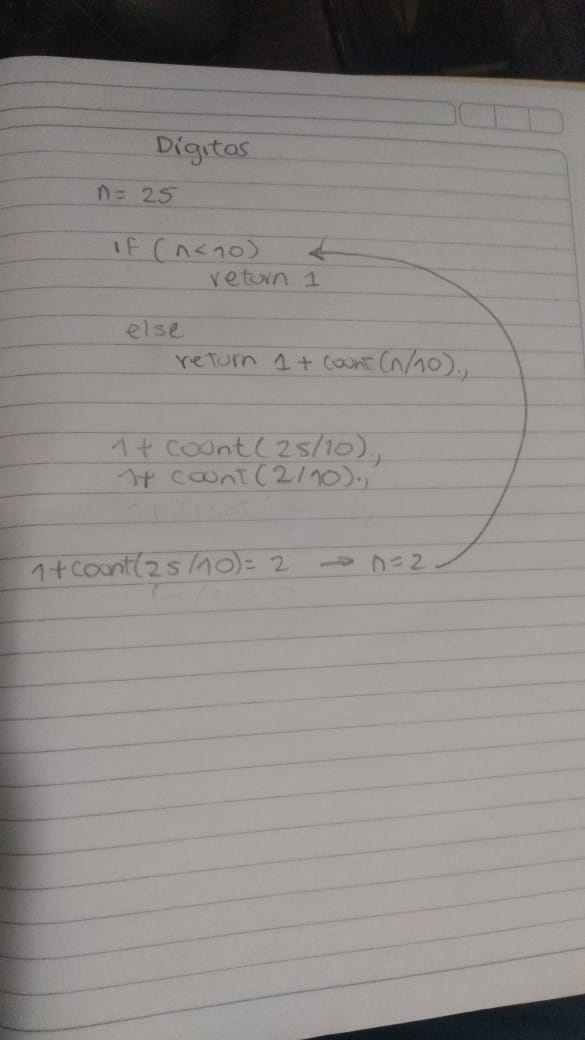 Dígitos
n= 25
if (n<10)
return 1
else
return 1 + count(n/10).,
1+ count(25/10).,
1+ count(2/10).,
1+count(25/10)= 2 → n=2